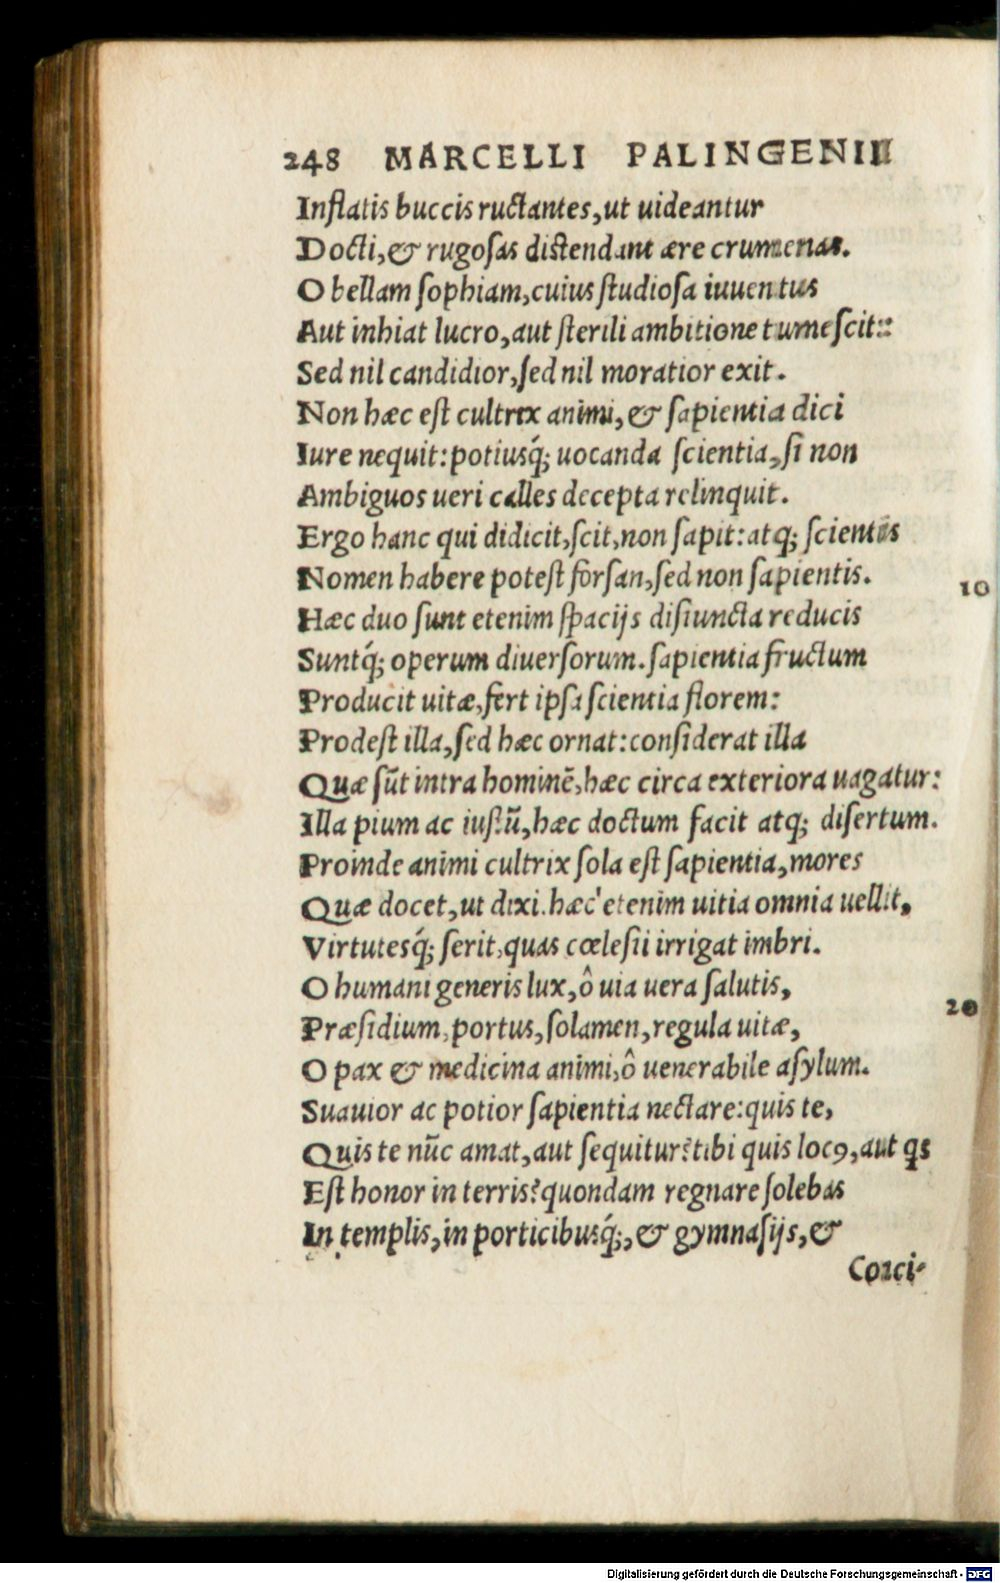 248 MARCELLI PALINGENII
Inflatis buccis ructantes, ut uideantur
Docti, & rugoſas diſtendant ære crumenas.
O bellam ſophiam, cuius ſtudioſa iuuentus
Aut inhiat lucro, aut ſterili ambitione tumeſcit:
Sed nil candidior, ſed nil moratior exit.
Non hæc eſt cultrix animi, & ſapientia dici
Iure nequit: potiusq́; uocanda ſcientia, ſi non
Ambiguos ueri calles decepta relinquit.
Ergo hanc qui didicit, ſcit, non ſapit: atq; ſcientis
Nomen habere poteſt forſan, ſed non ſapientis.
10
Hæc duo ſunt etenim ſpacijs diſiuncta reducis
Suntq́; operum diuerſorum. ſapientia fructum
Producit uitæ, fert ipſa ſcientia florem:
Prodeſt illa, ſed hæc ornat: conſiderat illa
Quæ ſūt intra hominē, hæc circa exteriora uagatur:
Illa pium ac iuſtū, hæc doctum facit atq; diſertum.
Proinde animi cultrix ſola eſt ſapientia, mores
Quæ docet, ut dixi. hæc etenim uitia omnia uellit,
Virtutesq́; ſerit, quas cœleſti irrigat imbri.
O humani generis lux, ô uia uera ſalutis,
20
Præſidium, portus, ſolamen, regula uitæ,
O pax & medicina animi, ô uenerabile aſylum.
Suauior ac potior ſapientia nectare: quis te,
Quis te nūc amat, aut ſequitur? tibi quis locꝰ, aut qs
Eſt honor in terris? quondam regnare ſolebas
In templis, in porticibusq́;, & gymnaſijs, &
Conci-
Digitalisierung gefördert durch die Deutsche Forschungsgemeinschaft - DFG